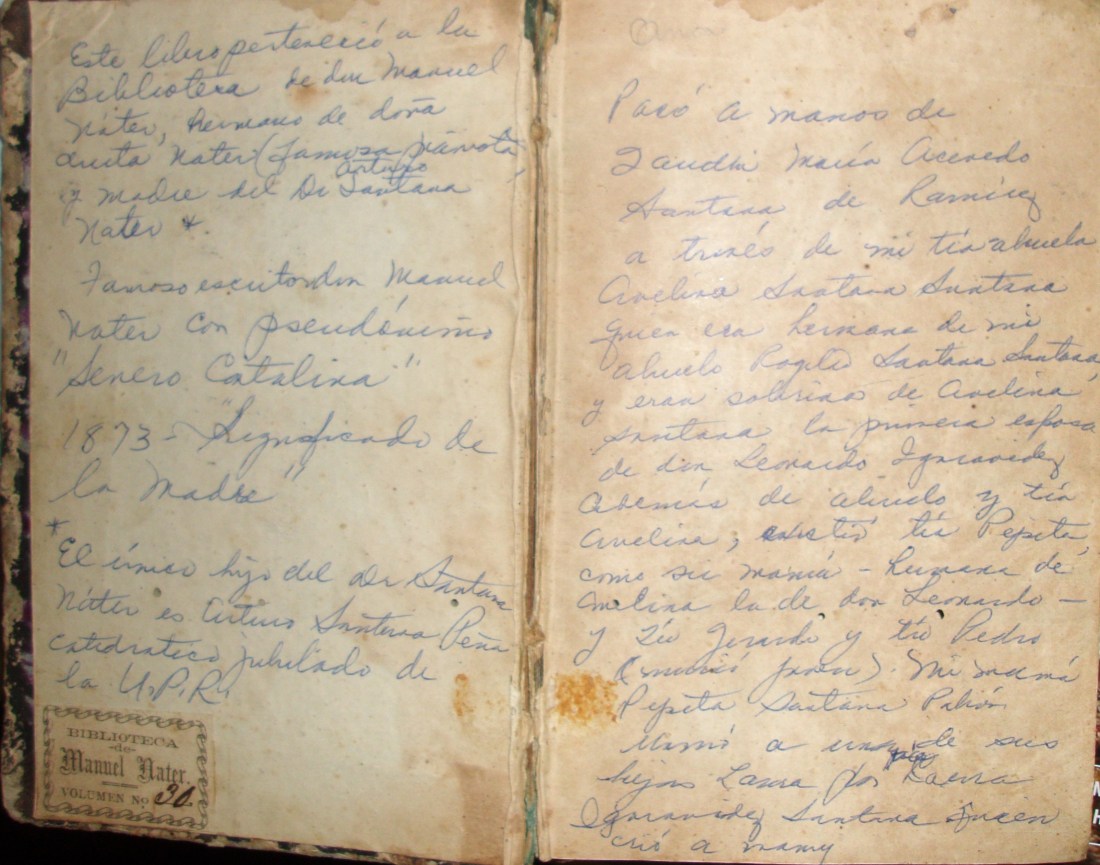 Este libro perteneció a la
Biblioteca de don Manuel
Náter, hermano de doña
Nater (famosa
y madre del Dr Arturo Santana
Nater *.
Famoso escritor don Manuel
Nater con pseudónimo
"Senero Catalina"
1873 - "Significado de
la Madre"
* El único hijo del Dr Santana
Náter es Arturo Santana Peña
catedratico jubilado de
la U.P.R.
BIBLIOTECA
de
Manuel Nater.
VOLUMEN No 30.
Pasó a manos de
María Acevedo
Santana de Ramírez
a través de mi tía abuela
Avelina Santana Santana
quien era hermana de mi
abuelo Santana Santana,
y eran sobrinos de Avelina
Santana la primera esposa
de don Leonardo Igaravidez
Además de abuelo y tía
Avelina, existió tía Pepita,
como su mamá - hermana de
Avelina la de don Leonardo -
y tío Gerardo y tío Pedro
(murió joven). Mi mamá
Pepita Santana
llamó a una de sus
hijas Laura por Laura
Igaravidez Santana quien
crió a mamy